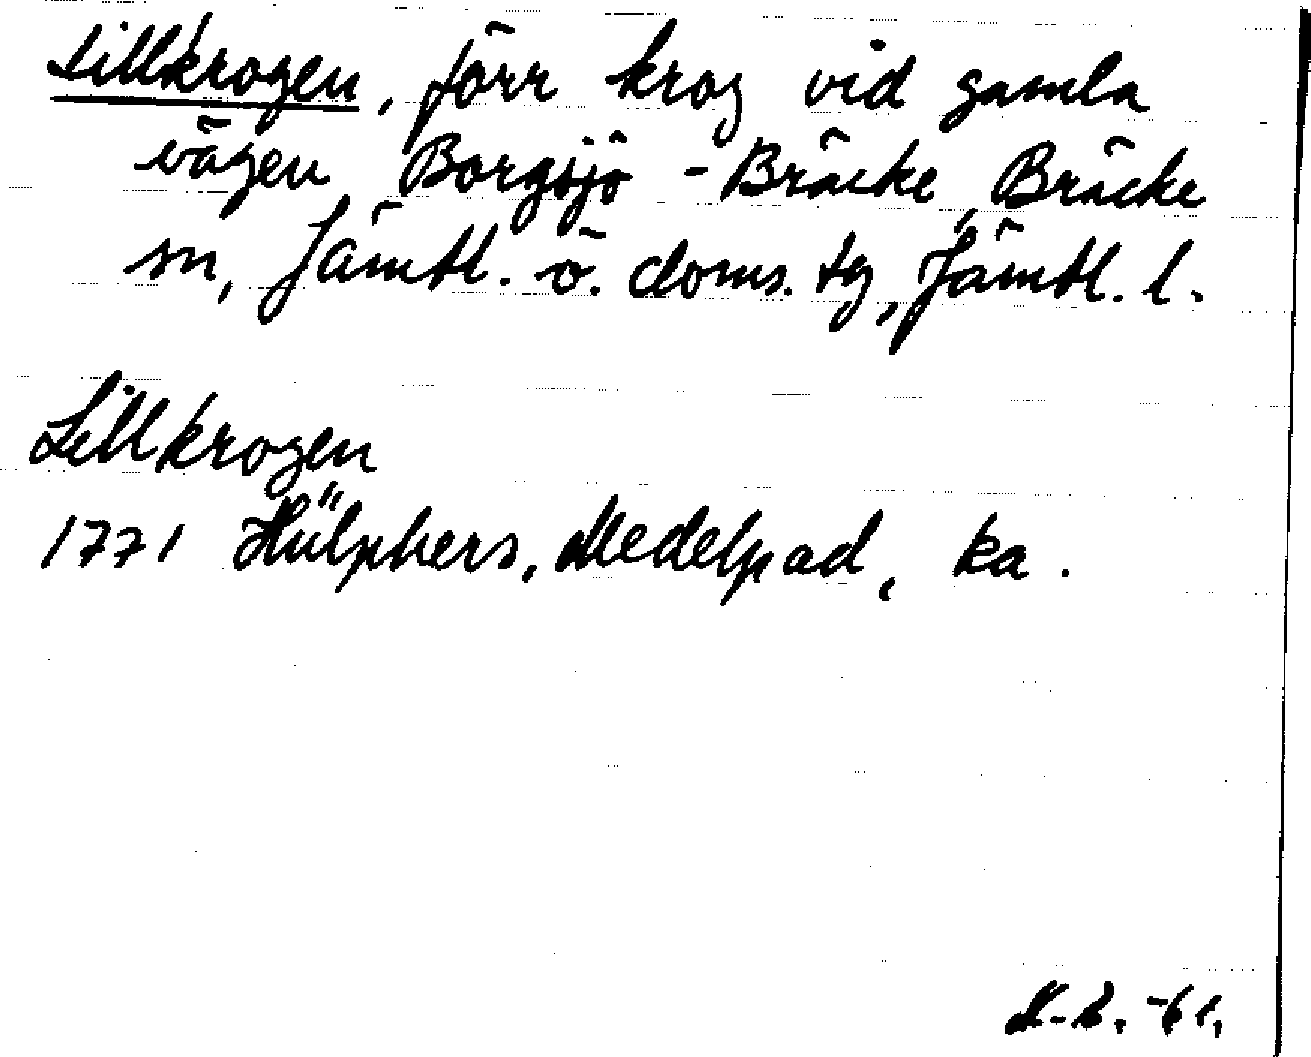 Lillkrogen, förr krog vid gamla
vägen Borgsjö - Bräcke, Bräcke
sn, Jämtl. ö. doms. tg, Jämtl. l.
Lillkrogen
1771 Hülphers, Medelpad, ka.
-61.